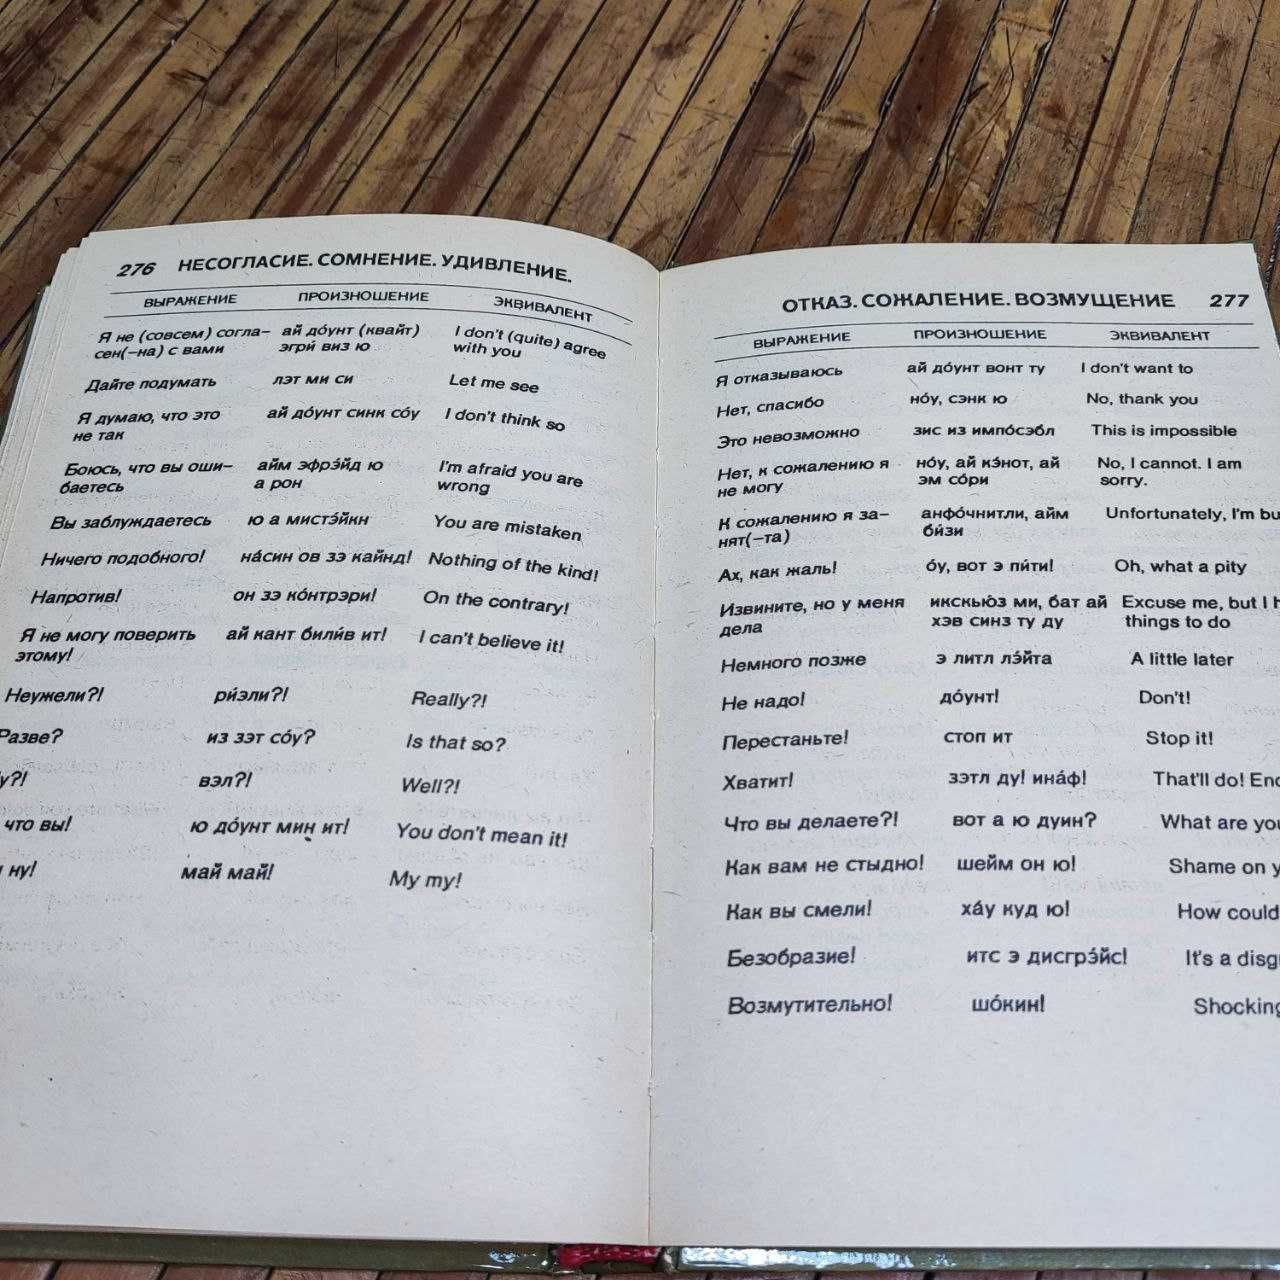 276 НЕСОГЛАСИЕ. СОМНЕНИЕ. УДИВЛЕНИЕ.
ВЫРАЖЕНИЕ ПРОИЗНОШЕНИЕ ЭКВИВАЛЕНТ
Я не (совсем) согла- ай дóунт (квайт) I don't (quite) agree
сен(-на) с вами эгрй виз ю with you
Дайте подумать лэт ми си Let me see
Я думаю, что это ай дóунт синк сóу I don't think so
не так
Боюсь, что вы оши- айм эфрэ́йд ю I'm afraid you are
баетесь а рон wrong
Вы заблуждаетесь ю а мистэ́йкн You are mistaken
Ничего подобного! нáсин ов зэ кайнд! Nothing of the kind!
Напротив! он зэ кóнтрэри! On the contrary!
Я не могу поверить ай кант билúв ит! I can't believe it!
этому!
Неужели?! рúэли?! Really?!
Разве? из зэт сóу? Is that so?
вэл?! Well?!
что вы! ю дóунт мин ит! You don't mean it!
ну! май май! My my!
ОТКАЗ. СОЖАЛЕНИЕ. ВОЗМУЩЕНИЕ 277
ВЫРАЖЕНИЕ ПРОИЗНОШЕНИЕ ЭКВИВАЛЕНТ
Я отказываюсь ай дóунт вонт ту I don't want to
Нет, спасибо нóу, сэнк ю No, thank you
Это невозможно зис из импóсэбл This is impossible
Нет, к сожалению я нóу, ай кэ́нот, ай No, I cannot. I am
не могу эм сóри sorry.
К сожалению я за- анфóчнитли, айм Unfortunately, I'm bu
нят(-та) бúзи
Ах, как жаль! óу, вот э пúти! Oh, what a pity
Извините, но у меня икскью́з ми, бат ай Excuse me, but I h
дела хэв синз ту ду things to do
Немного позже э литл лэ́йта A little later
Не надо! дóунт! Don't!
Перестаньте! стоп ит Stop it!
Хватит! зэтл ду! инáф! That'll do! Eno
Что вы делаете?! вот а ю дуин? What are you
Как вам не стыдно! шейм он ю! Shame on y
Как вы смели! хáу куд ю! How could
Безобразие! итс э дисгрэ́йс! It's a disg
Возмутительно! шóкин! Shocking